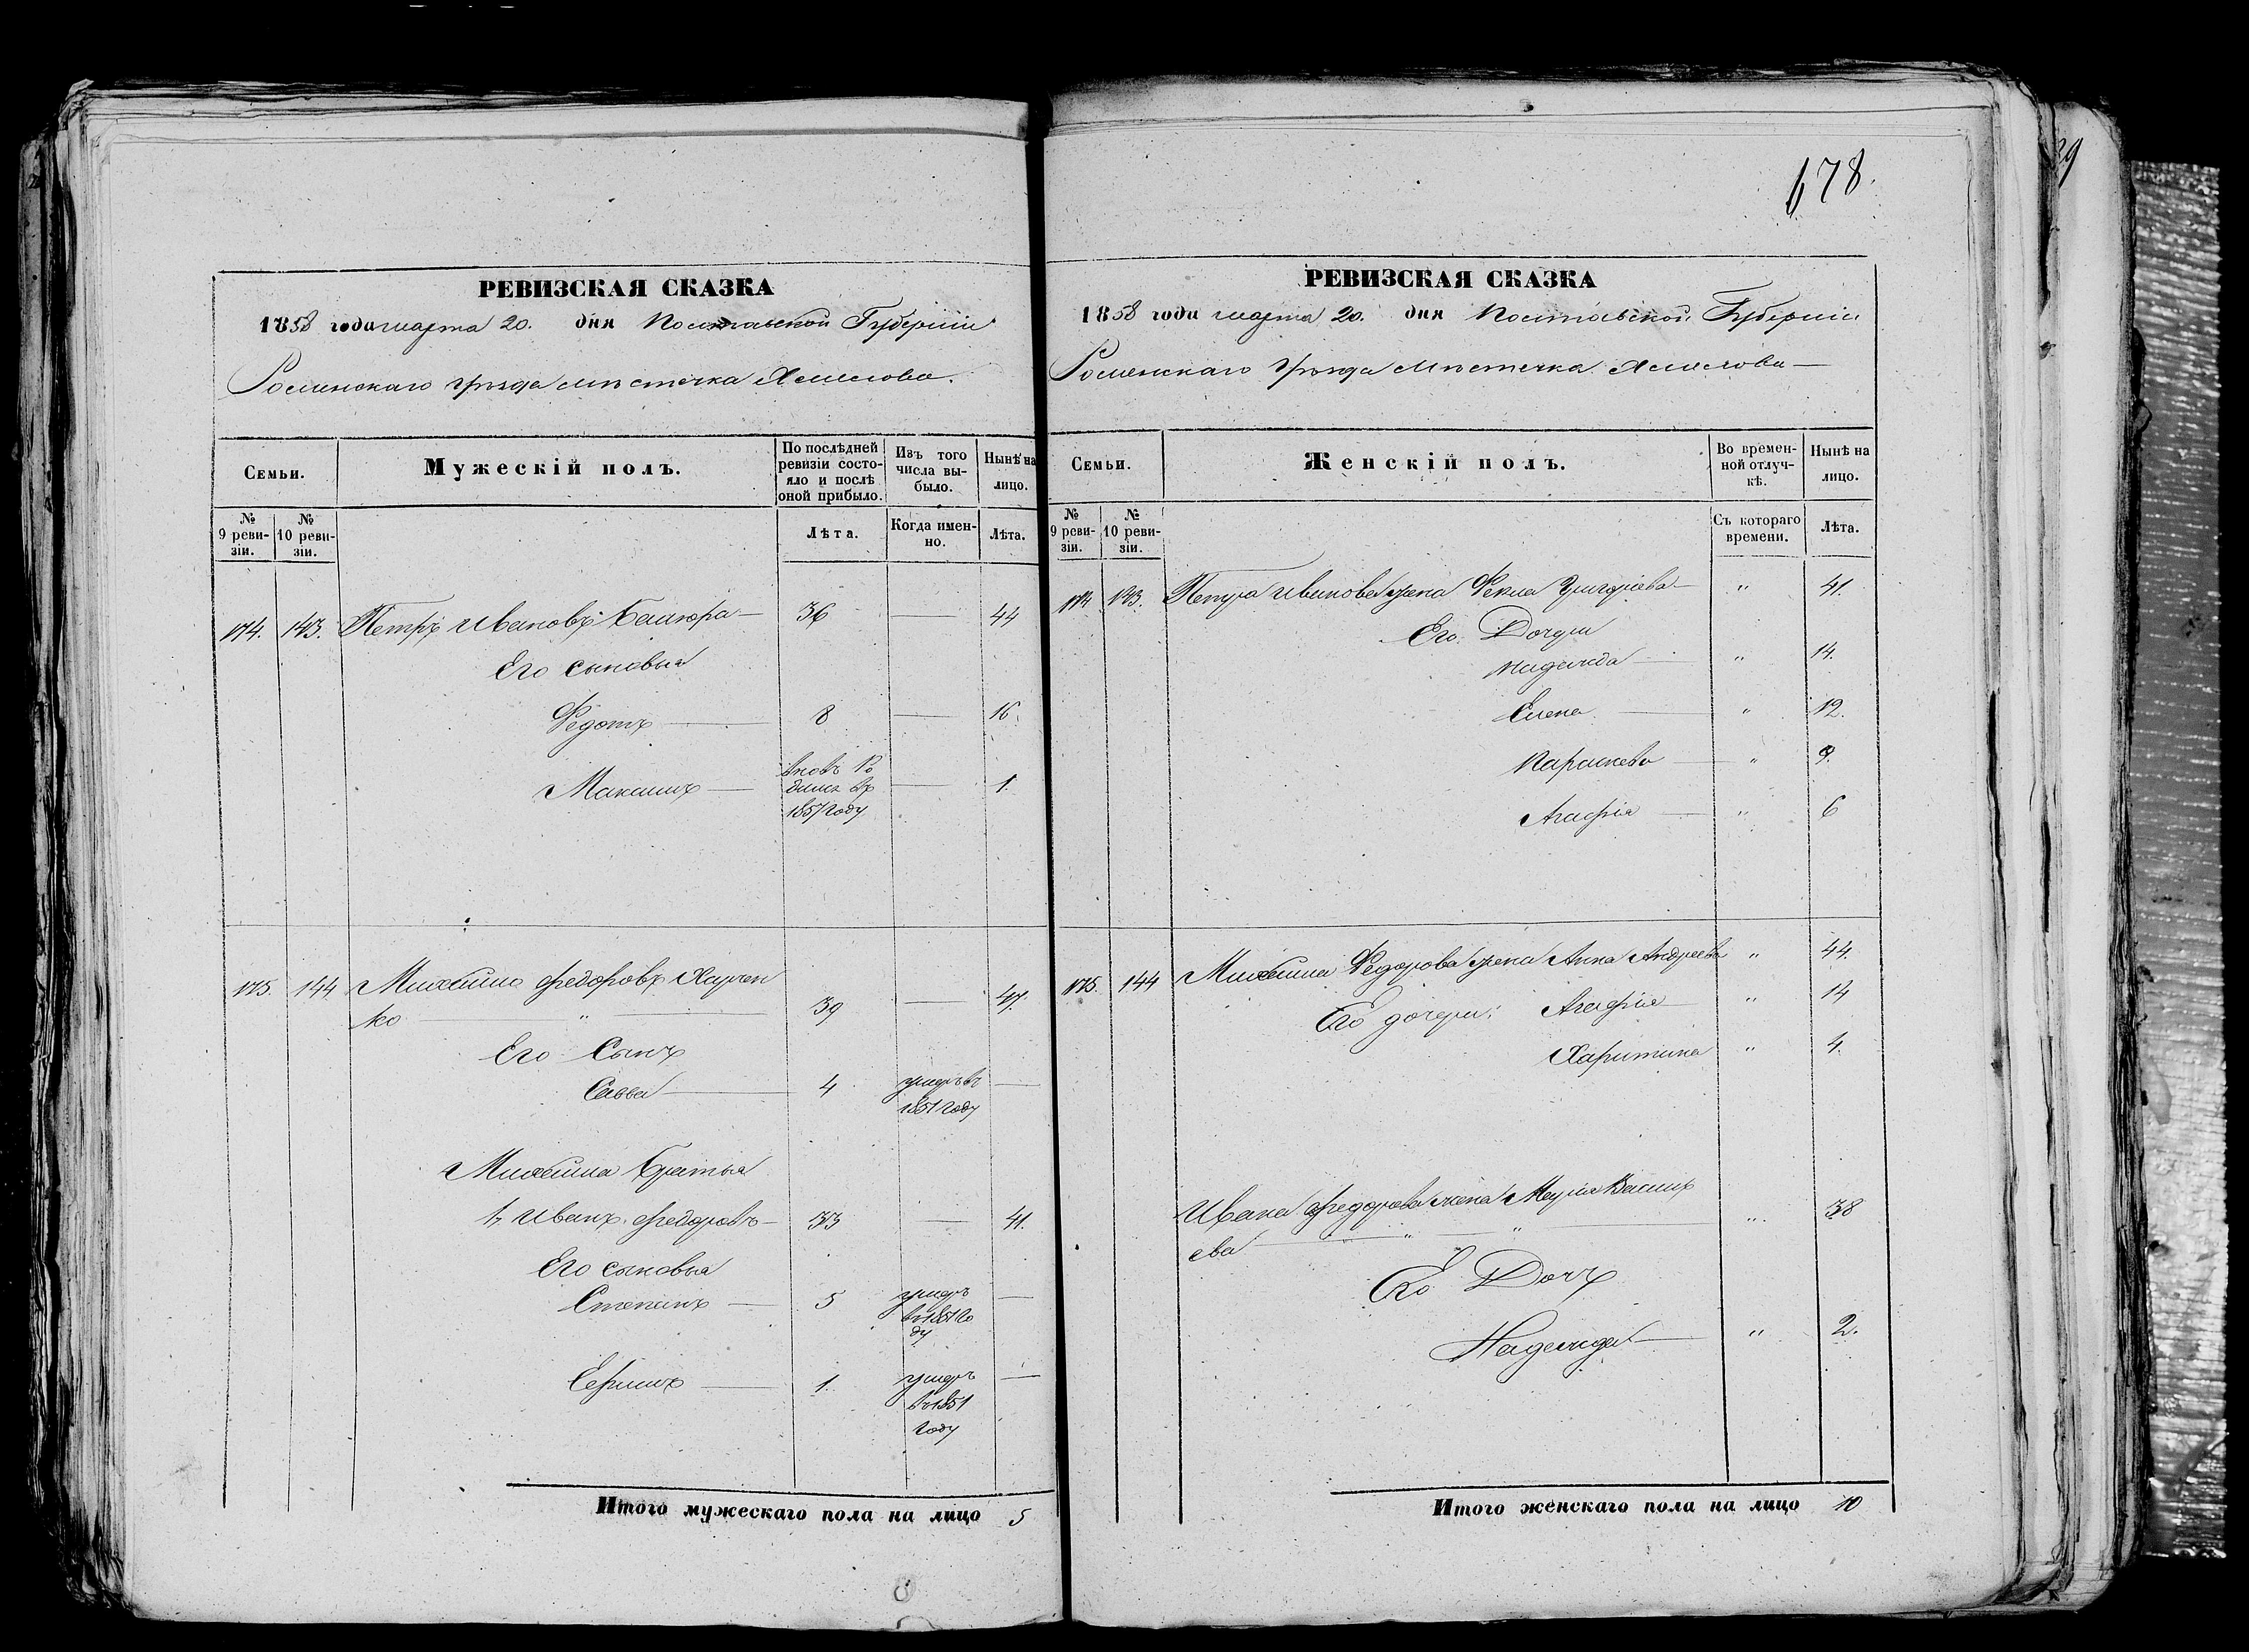 678.
РЕВИЗСКАЯ СКАЗКА
1858 года марта 20. дня Полтавской Губерніи
Роменскаго уѣзда мѣстечка Смелова.
Семьи.
Мужескій полъ.
По послѣдней ревизіи состояло и послѣ оной прибыло.
Изъ того числа выбыло.
Нынѣ на лицо.
№ 9 ревизіи.
№ 10 ревизіи.
Лѣта.
Когда именно.
Лѣта.
174. 143. Петръ Ивановъ 36 — 44
Его сыновья
Федотъ — 8 — 16.
Максимъ — вновь Ро
дился въ — 1.
1857 году
175. 144 Михайло Федоровъ Харчен
ко — " — 39 — 47.
Его Сынъ
Савва — 4 умеръ въ —
1851 году
Михайла братья
1, Иванъ Федоровъ — 33 — 41.
Его сыновья
Степанъ — 5 умеръ —
въ 1851 го
ду
Ефимъ — 1. умеръ —
въ 1851
году
Итого мужескаго пола на лицо 5
РЕВИЗСКАЯ СКАЗКА
1858 года марта 20. дня Полтавской Губерніи
Роменскаго уѣзда мѣстечка Смелова —
Семьи.
Женскій полъ.
Во временной отлучкѣ.
Нынѣ на лицо.
№ 9 ревизіи.
№ 10 ревизіи.
Съ котораго времени.
Лѣта.
174 143. Петра Иванова жена Фекла Григорьева — " 41.
Его Дочери
Надежда — " 14.
Елена — " 12.
Параскева — " 9.
Агафія — " 6
175. 144 Михайла Федорова жена Анна Андреева " 44.
Его дочери: Агафія — " 14
Харитина " 4.
Ивана Федорова жена Марія Васильева
ева — " — " — " 38
Его Дочь
Надежда — " 2.
Итого женскаго пола на лицо 10